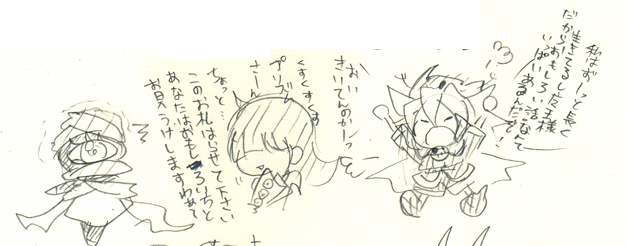 私はずーっと長く
生きてるし、だ王様
だからおもしろい話なんて
いっぱいあるんだぞ!
おい
きいてんのかーっ
くすくすくす
プリズム
さーん
ちょっと…
このお札はがして下さい
あなたはおもしろいちと
お見うけしますわぁて